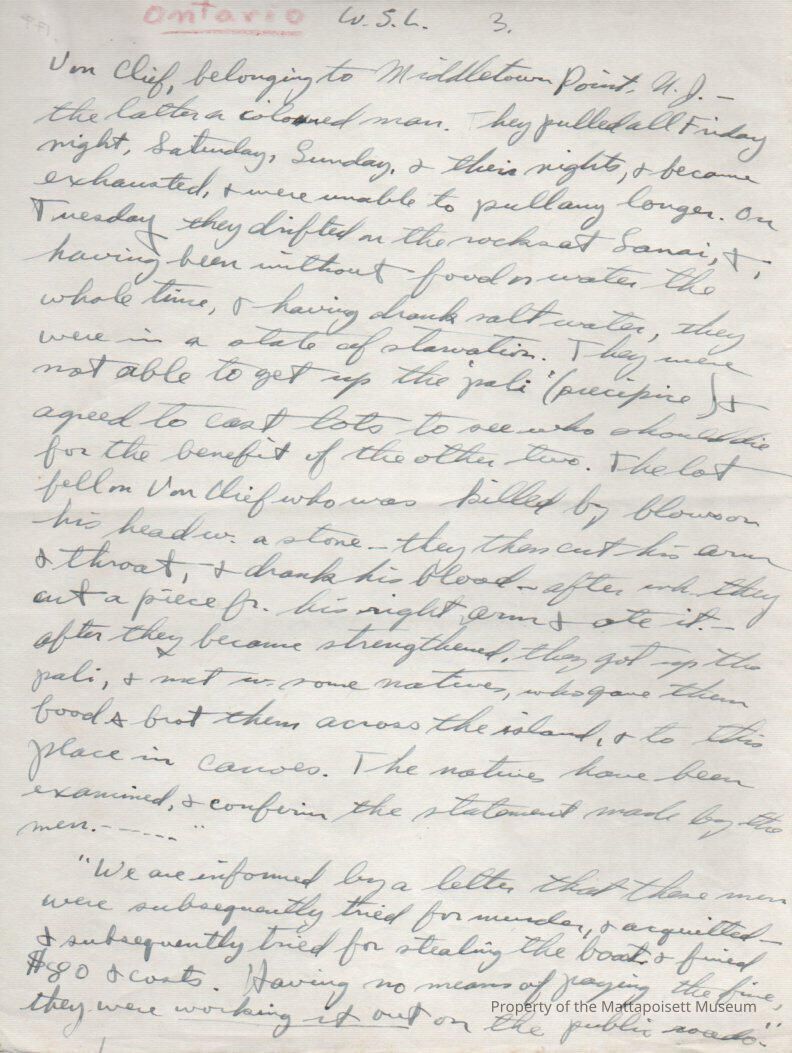 Ontario W.S.L. 3.
Von Clief, belonging to Middletown Point, N.J. —
the latter a coloured man. They pulled all Friday
night, Saturday, Sunday, & their nights, & became
exhausted, & were unable to pull any longer. On
Tuesday they drifted on the rocks at Lanai, &,
having been without food or water the
whole time, & having drank salt water, they
were in a state of starvation. They were
not able to get up the "pali" (precipice) &
agreed to cast lots to see who should die
for the benefit of the other two. The lot
fell on Von Clief who was killed by blows on
his head w. a stone — they then cut his arm
& throat, & drank his blood — after wh. they
cut a piece fr. his right arm & ate it. —
after they became strengthened, they got up the
pali, & met w. some natives, who gave them
food & brot them across the island, & to this
place in canoes. The natives have been
examined, & confirm the statement made by the
men. - - - - - -"
"We are informed by a letter that these men
were subsequently tried for murder, & acquitted —
& subsequently tried for stealing the boat & fined
$80 & costs. Having no means of paying the fine,
they were working it out on the public roads."
Property of the Mattapoisett Museum